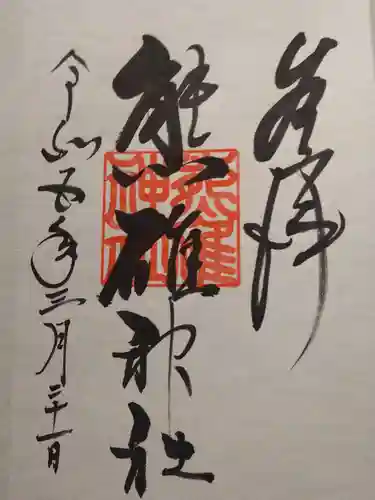 奉拝
熊碓神社
熊碓
神社
令和五年三月三十一日